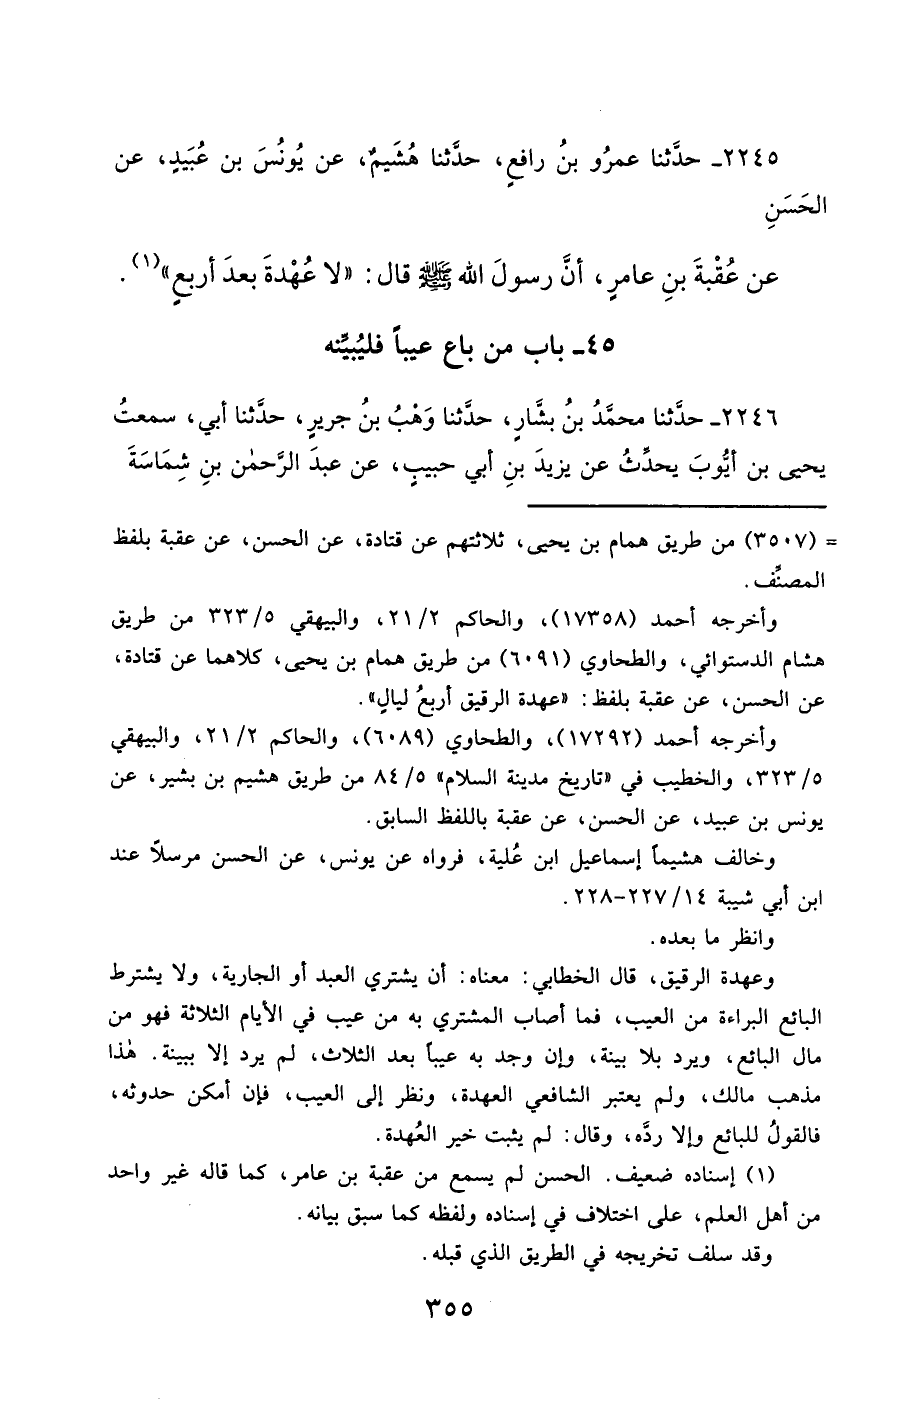 ٢٢٤٥ـ حدَّثنا عمرُو بنُ رافعٍ، حدَّثنا هُشَيمٌ، عن يُونُسَ بن عُبَيدٍ، عن
الحَسَنِ
عن عُقْبةَ بنِ عامرٍ، أنَّ رسولَ الله ﷺ قال: «لا عُهْدةَ بعدَ أربعٍ»(١).
٤٥ـ باب من باع عيباً فليُبيِّنه
٢٢٤٦ـ حدَّثنا محمَّدُ بنُ بشَّارٍ، حدَّثنا وَهْبُ بنُ جريرٍ، حدَّثنا أبي، سمعتُ
يحيى بن أيُّوبَ يحدِّثُ عن يزيدَ بنِ أبي حبيبٍ، عن عبدَ الرَّحمٰن بنِ شِمَاسَةَ
= (٣٥٠٧) من طريق همام بن يحيى، ثلاثتهم عن قتادة، عن الحسن، عن عقبة بلفظ
المصنِّف.
وأخرجه أحمد (١٧٣٥٨)، والحاكم ٢/ ٢١، والبيهقي ٥/ ٣٢٣ من طريق
هشام الدستوائي، والطحاوي (٦٠٩١) من طريق همام بن يحيى، كلاهما عن قتادة،
عن الحسن، عن عقبة بلفظ: «عهدة الرقيق أربعُ ليالٍ».
وأخرجه أحمد (١٧٢٩٢)، والطحاوي (٦٠٨٩)، والحاكم ٢/ ٢١، والبيهقي
٥/ ٣٢٣، والخطيب في «تاريخ مدينة السلام» ٥/ ٨٤ من طريق هشيم بن بشير، عن
يونس بن عبيد، عن الحسن، عن عقبة باللفظ السابق.
وخالف هشيماً إسماعيل ابن عُلية، فرواه عن يونس، عن الحسن مرسلاً عند
ابن أبي شيبة ١٤/ ٢٢٧-٢٢٨.
وانظر ما بعده.
وعهدة الرقيق، قال الخطابي: معناه: أن يشتري العبد أو الجارية، ولا يشترط
البائع البراءة من العيب، فما أصاب المشتري به من عيب في الأيام الثلاثة فهو من
مال البائع، ويرد بلا بينة، وإن وجد به عيباً بعد الثلاث، لم يرد إلا ببينة. هٰذا
مذهب مالك، ولم يعتبر الشافعي العهدة، ونظر إلى العيب، فإن أمكن حدوثه،
فالقولُ للبائع وإلا ردَّه، وقال: لم يثبت خير العُهدة.
(١) إسناده ضعيف. الحسن لم يسمع من عقبة بن عامر، كما قاله غير واحد
من أهل العلم، على اختلاف في إسناده ولفظه كما سبق بيانه.
وقد سلف تخريجه في الطريق الذي قبله.
٣٥٥